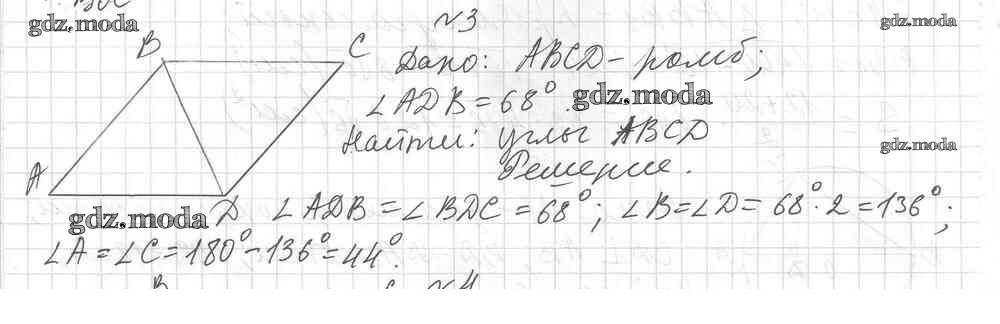 gdz.moda
№3
gdz.moda
B
C
Дано: ABCD - ромб;
∠ADB = 68°.
gdz.moda
Найти: углы ABCD
gdz.moda
Решение.
A
gdz.moda
D
∠ADB = ∠BDC = 68°; ∠B = ∠D = 68° · 2 = 136°;
∠A = ∠C = 180° - 136° = 44°.
№4